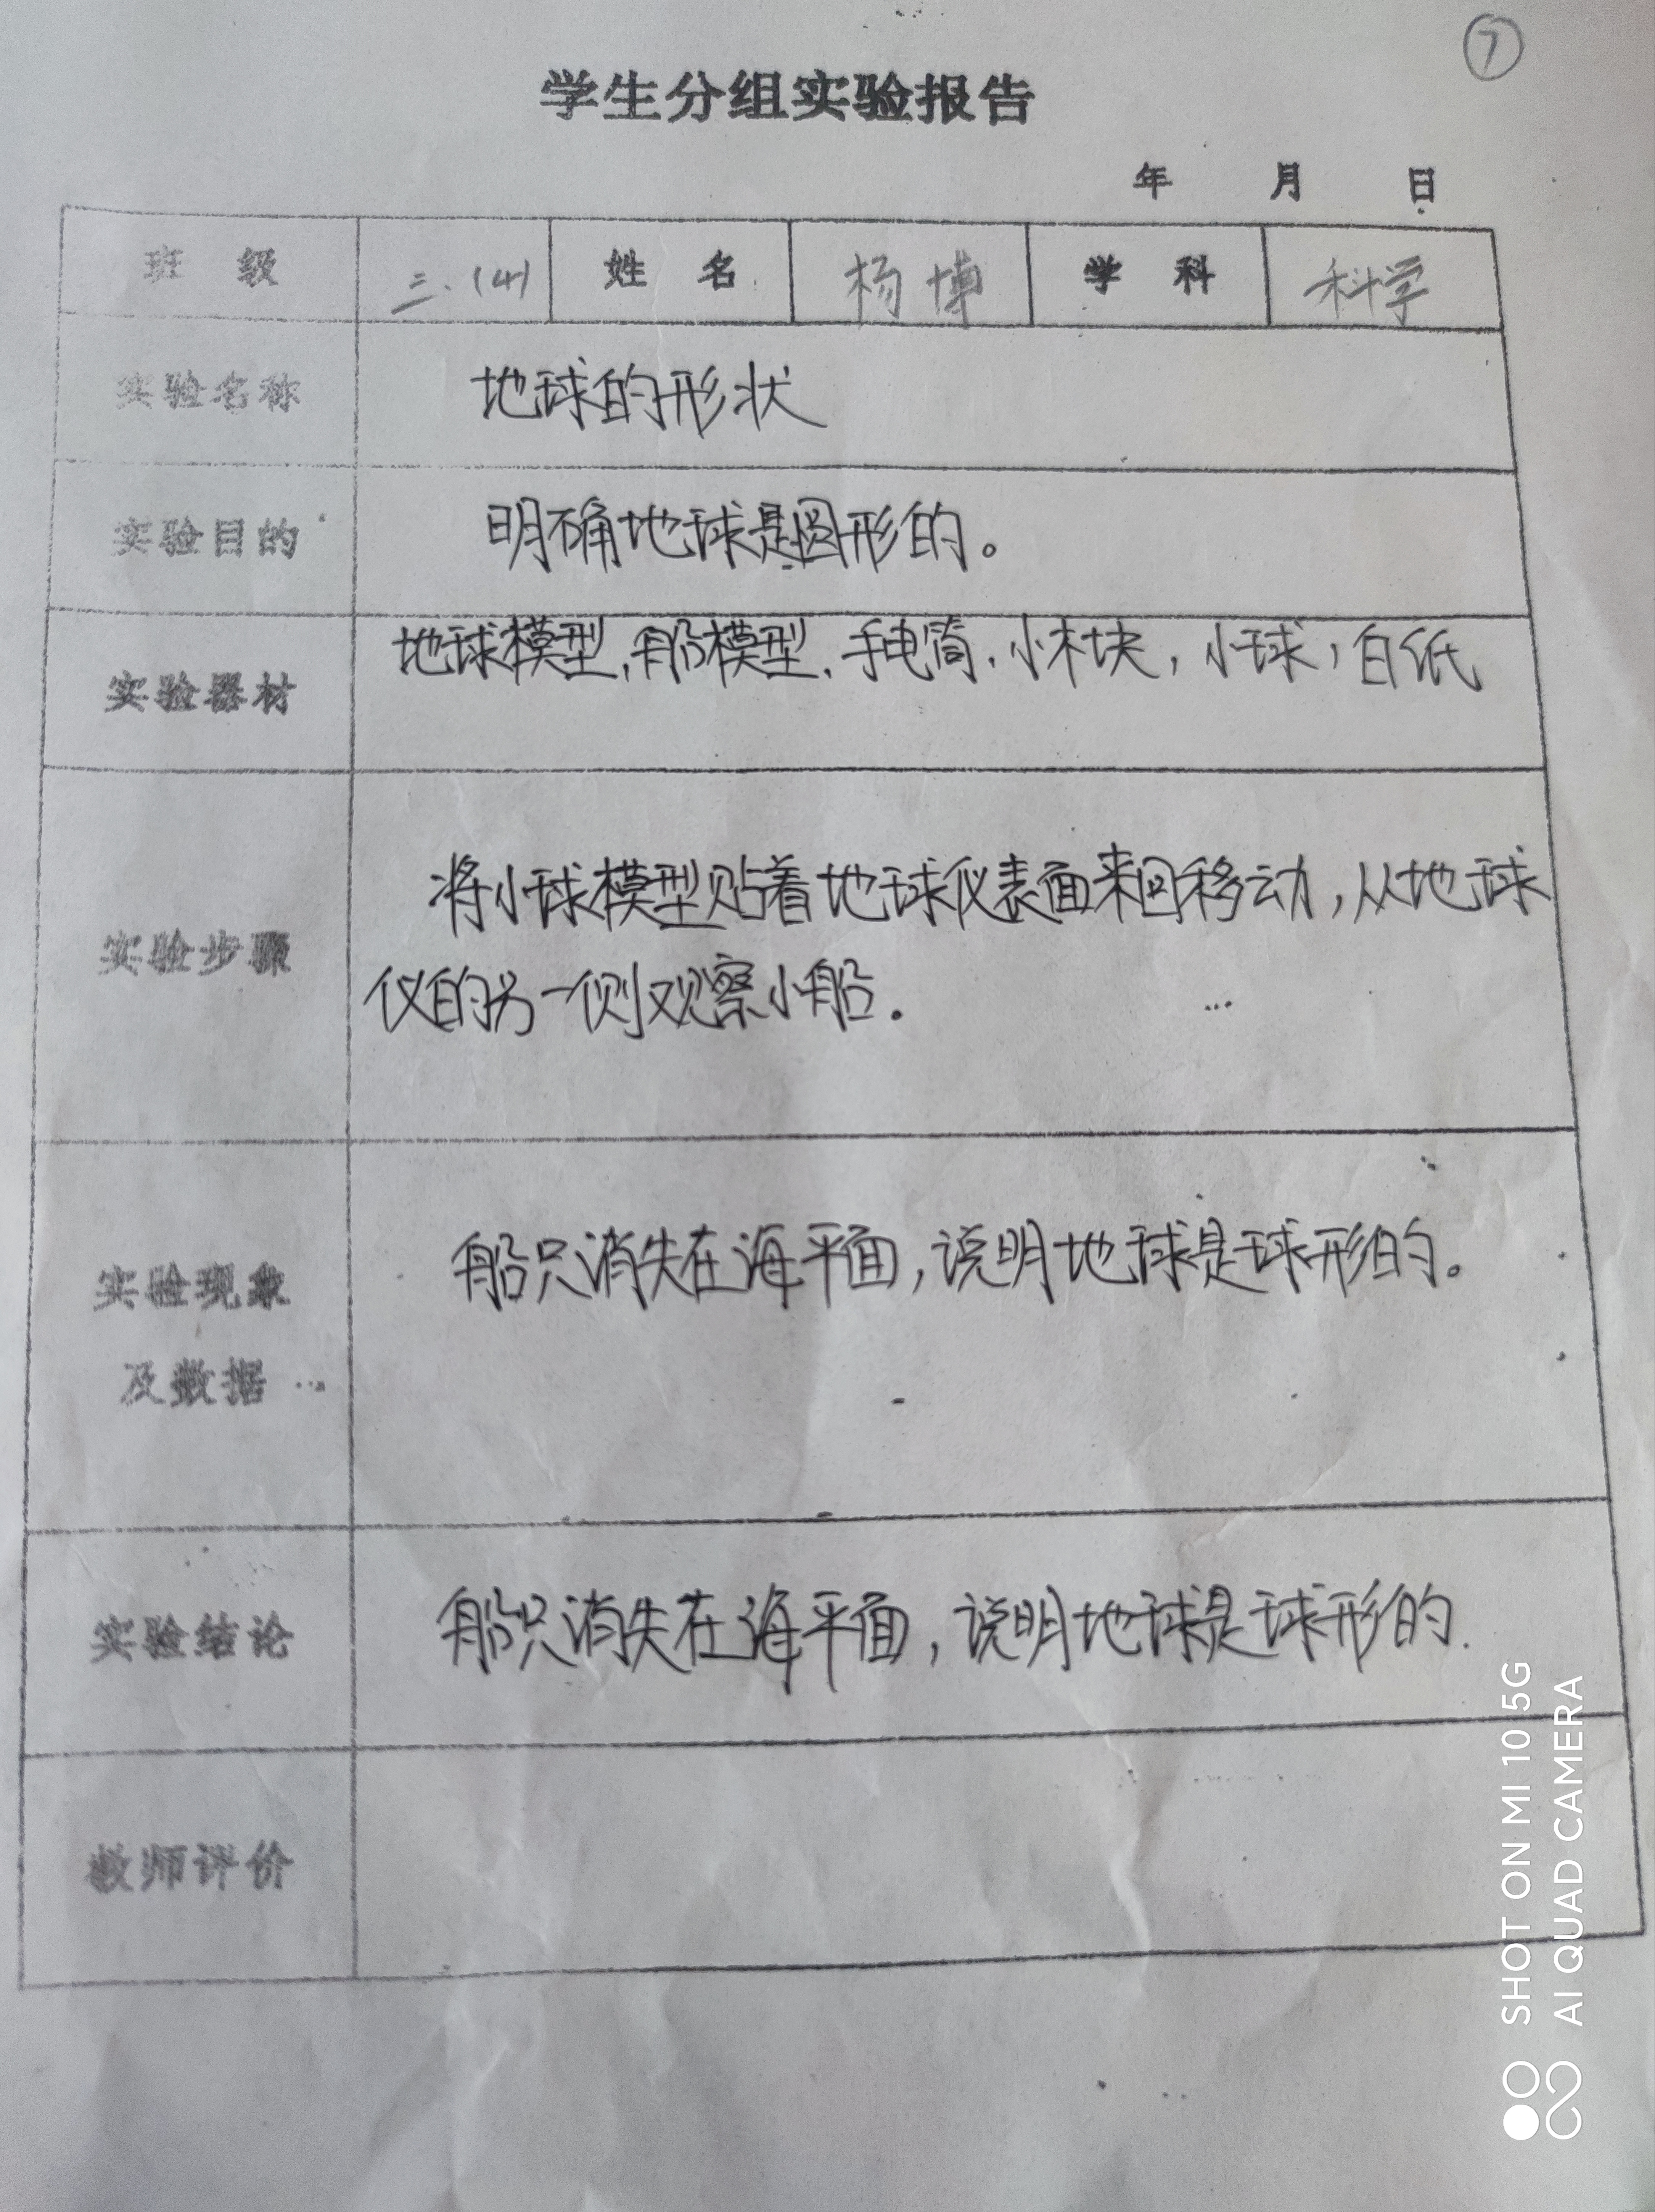 ⑦
学生分组实验报告
年 月 日
班 级 三.(4) 姓 名 杨博 学 科 科学
实验名称 地球的形状
实验目的 明确地球是圆形的。
实验器材 地球模型,船模型,手电筒,小木块,小球,白纸
实验步骤 将小球模型贴着地球仪表面来回移动,从地球
仪的另一侧观察小船.
实验现象 船只消失在海平面,说明地球是球形的。
及数据
实验结论 船只消失在海平面,说明地球是球形的.
教师评价
SHOT ON MI 10 5G
AI QUAD CAMERA